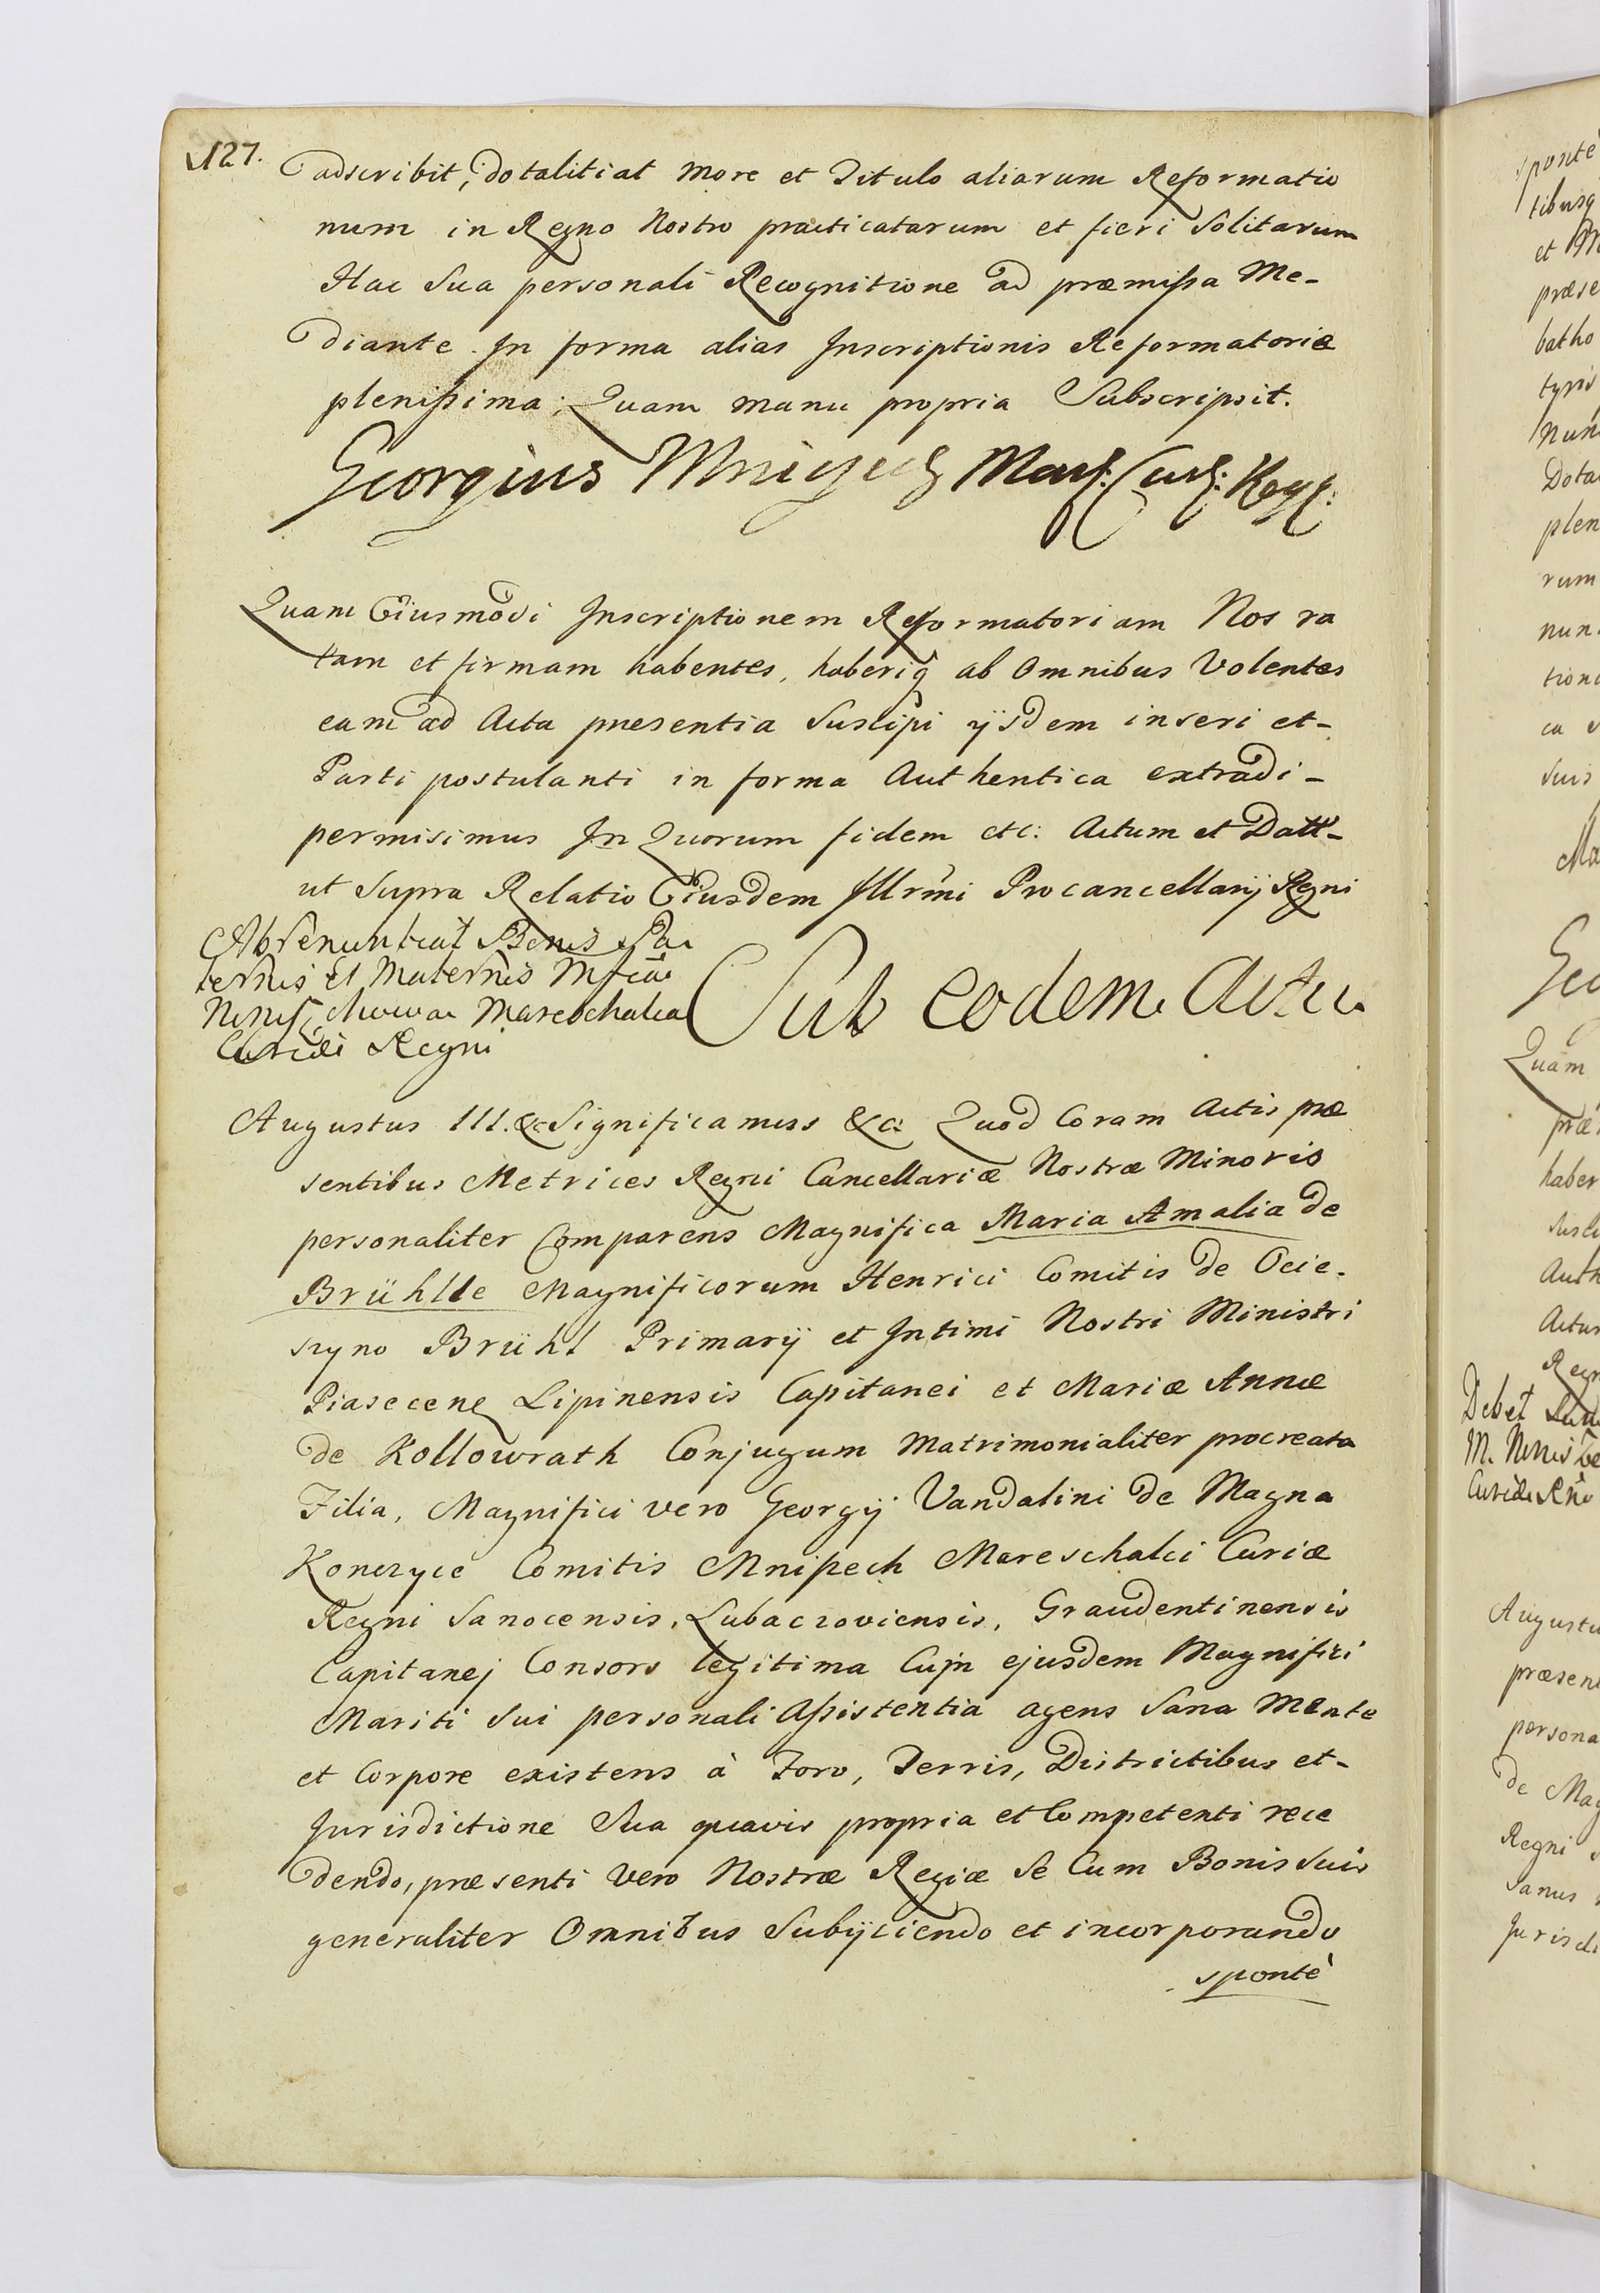 127.
adscribit, dotalitiat More et Titulo aliarum Reformatio
num in Regno Nostro practicatarum et fieri Solitarum
Hac Sua personali Recognitione ad præmissa Me-
diante. In forma alias Inscriptionis Reformatoriæ
plenissima; Quam manu propria Subscripsit.
Georgius Mniszech Mars: Cur: Reg:
Quam Eiusmodi Inscriptionem Reformatoriam Nos ra
tam et firmam habentes, haberiq̃ ab Omnibus Volentes
eam ad Acta præsentia Suscipi ijsdem inseri et-
Parti postulanti in forma Authentica extradi-
permisimus In Quorum fidem etc: Actum et Datt-
ut Supra Relatio Eiusdem Illrmi Procancellarij Regni
Abrenuntiat Bonis Pa
ternis et Maternis Mfica
Mniszchowa Mareschalca
Curiæ Regni
Sub eodem Actu
Augustus III. &c Significamus &c: Quod Coram Actis præ
sentibus Metrices Regni Cancellariæ Nostræ Minoris
personaliter Comparens Magnifica Maria Amalia de
Brühlle Magnificorum Henrici Comitis de Ocie-
szyno Brühl Primarij et Intimi Nostri Ministri
Piasecene Lipinensis Capitanei et Mariæ Annæ
de Kollowrath Conjugum Matrimonialiter procreata
Filia, Magnifici vero Georgij Vandalini de Magna
Konczyce Comitis Mnisech Mareschalci Curiæ
Regni Sanocensis, Lubaczoviensis, Graudentinensis
Capitanej Consors legitima Cujn ejusdem Magnifici
Mariti Sui personali Assistentia agens Sana Mente
et Corpore existens à Foro, Terris, Districtibus et-
Jurisdictione Sua quavis propria et Competenti rece
dendo, præsenti vero Nostræ Regiæ Se Cum Bonis Suis
generaliter Omnibus Subijciendo et incorporando
sponte
sponte
et M
præse
batho
tyris
Nun
Dota
plen
rum
nun
tion
ca
Suis
Ma
Geo
Quam
præ
haber
Susci
Auth
Actu
Regn
Debet
M.
Curiæ
Augustu
præsen
persona
de Mag
Regni
Sanus
Jurisdi